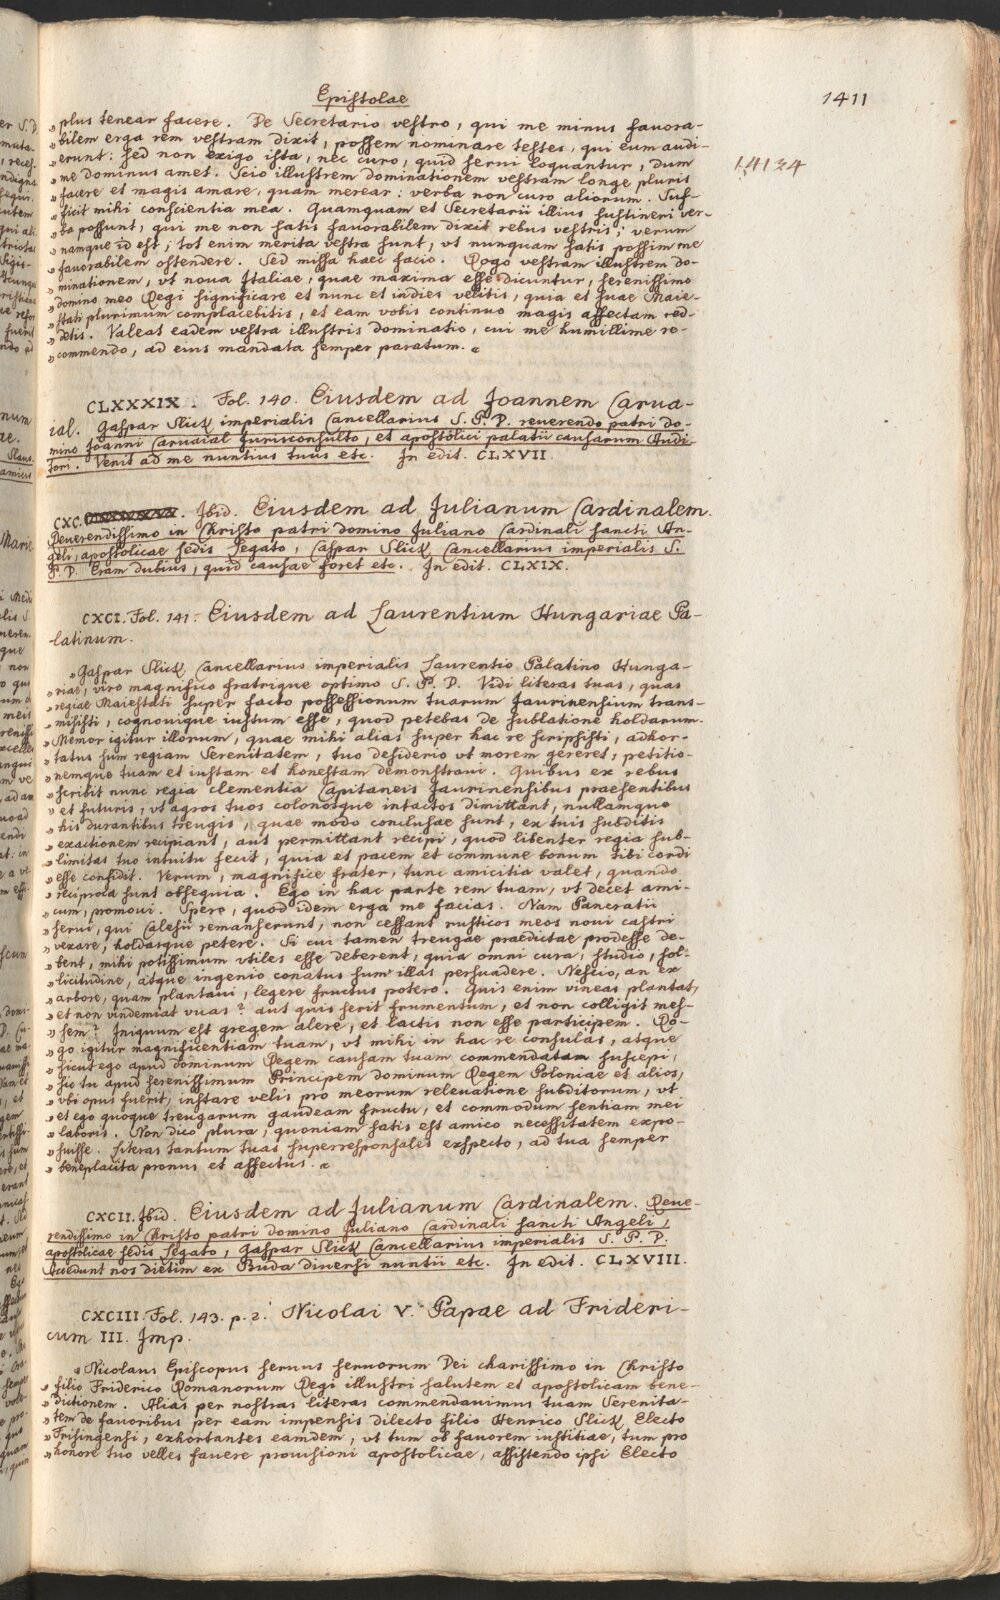 Epistolae
1411
14134
„ plus tenear facere. De Secretario vestro, qui me minus fauora-
„ bilem erga rem vestram dixit, possem nominare testes, qui eum audi-
„ erunt: sed non exigo ista, nec curo, quid serui loquantur, dum
„ me dominus amet. Scio illustrem dominationem vestram longe pluris
„ facere et magis amare, quam merear: verba non curo aliorum. Suf-
„ ficit mihi conscientia mea. Quamquam et Secretarii illius sustineri ver-
„ ba possunt, qui me non satis fauorabilem dixit rebus vestris; verum
„ namque id est; tot enim merita vestra sunt, vt nunquam satis possim me
„ fauorabilem ostendere. Sed missa haec facio. Rogo vestram illustrem do-
„ minationem, vt noua Italiae, quae maxima esse dicuntur, serenissimo
„ domino meo Regi significare et nunc et indies velitis, quia et suae Maie-
„ stati plurimum complacebitis, et eam vobis continuo magis affectam red-
„ detis. Valeat eadem vestra illustris dominatio, cui me humillime re-
„ commendo, ad eius mandata semper paratum. „
CLXXXIX. Fol. 140. Eiusdem ad Joannem Carua-
ial. Gaspar Slick imperialis Cancellarius S. P. D. reuerendo patri do-
mino Joanni Caruaial Jurisconsulto, et apostolici palatii causarum Audi-
tori. Venit ad me nuntius tuus etc. In edit. CLXVII.
CXC. Ibid. Eiusdem ad Julianum Cardinalem.
Reuerendissimo in Christo patri domino Juliano Cardinali sancti An-
geli, apostolicae sedis Legato, Caspar Slick, Cancellarius imperialis S.
P. D. Eram dubius, quid causae foret etc. In edit. CLXIX.
CXCI. Fol. 141. Eiusdem ad Laurentium Hungariae Pa-
latinum.
„ Gaspar Slick, Cancellarius imperialis Laurentio Palatino Hunga-
„ riae, viro magnifico fratrique optimo S. P. D. Vidi literas tuas, quas
„ regiae Maiestati super facto possessionum tuarum Jaurinensium trans-
„ misisti, cognouique iustum esse, quod petebas de sublatione holdarum.
„ Memor igitur illorum, quae mihi alias super hac re scripsisti, adhor-
„ tatus sum regiam Serenitatem, tuo desiderio vt morem gereret, petitio-
„ nemque tuam et iustam et honestam demonstraui. Quibus ex rebus
„ scribit nunc regia clementia Capitaneis Jaurinensibus praesentibus
„ et futuris, vt agros tuos colonosque intactos dimittant, nullamque
„ his durantibus treugis, quae modo conclusae sunt, ex tuis subditis
„ exactionem recipiant, aut permittant recipi, quod libenter regia sub-
„ limitas tuo intuitu fecit, quia et pacem et commune bonum tibi cordi
„ esse confidit. Verum, magnifice frater, tunc amicitia valet, quando
„ reciproca sunt obsequia. Ego in hac parte rem tuam, vt decet ami-
„ cum, promoui. Spero, quod idem erga me facias. Nam Pancratii
„ serui, qui Calesii remanserunt, non cessant rusticos meos noui castri
„ vexare, holdasque petere. Si cui tamen treugae praedictae prodesse de-
„ bent, mihi potissimum vtiles esse deberent, quia omni cura, studio, sol-
„ licitudine, atque ingenio conatus sum illas persuadere. Nescio, an ex
„ arbore, quam plantaui, legere fructus potero. Quis enim vineas plantat,
„ et non vindemiat vuas? aut quis serit frumentum, et non colligit mes-
„ sem? Iniquum est gregem alere, et lactis non esse participem. Ro-
„ go igitur magnificentiam tuam, vt mihi in hac re consulas, atque
„ sicut ego apud dominum Regem causam tuam commendatam suscepi,
„ sic tu apud serenissimum Principem dominum Regem Poloniae et alios,
„ vbi opus fuerit, instare velis pro meorum releuatione subditorum, vt
„ et ego quoque treugarum gaudeam fructu, et commodum sentiam mei
„ laboris. Non dico plura, quoniam satis est amico necessitatem expo-
„ suisse. Literas tantum tuas superresponsales exspecto, ad tua semper
„ beneplacita pronus et affectus. „
CXCII. Ibid. Eiusdem ad Julianum Cardinalem. Reue-
rendissimo in Christo patri domino Juliano Cardinali sancti Angeli,
apostolicae sedis Legato, Gaspar Slick Cancellarius imperialis S. P. D.
Accedunt nos dietim ex Buda diuersi nuntii etc. In edit. CLXVIII.
CXCIII. Fol. 143. p. 2. Nicolai V. Papae ad Frideri-
cum III. Imp.
„ Nicolaus Episcopus seruus seruorum Dei charissimo in Christo
„ filio Friderico Romanorum Regi illustri salutem et apostolicam bene-
„ dictionem. Alias per nostras literas commendauimus tuam Serenita-
„ tem de fauoribus per eam impensis dilecto filio Henrico Slick, Electo
„ Frisingensi, exhortantes eamdem, vt tum ob fauorem iustitiae, tum pro
„ honore tuo velles fauere prouisioni apostolicae, assistendo ipsi Electo